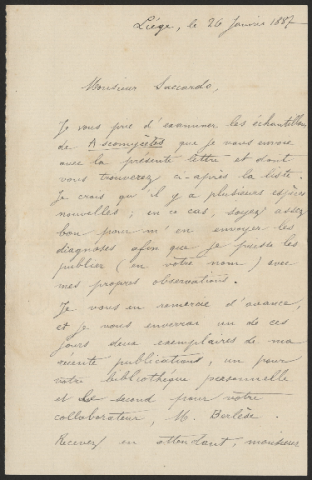 Liége, le 26 Janvier 1887
Monsieur Saccardo,
Je vous prie d'examiner les échantillons
de Ascomycètes que je vous envoie
avec la présente lettre et dont
vous trouverez ci-après la liste.
Je crois qu'il y a plusieurs espèces
nouvelles ; en ce cas, soyez assez
bon pour m'en envoyer les
diagnoses afin que je puisse les
publier (en votre nom) avec
mes propres observations.
Je vous en remercie d'avance,
et je vous enverrai un de ces
jours deux exemplaires de ma
récente publications, un pour
votre bibliothéque personnelle
et le second pour votre
collaborateur, M. Berlèse.
Recevez en attendant, monsieur